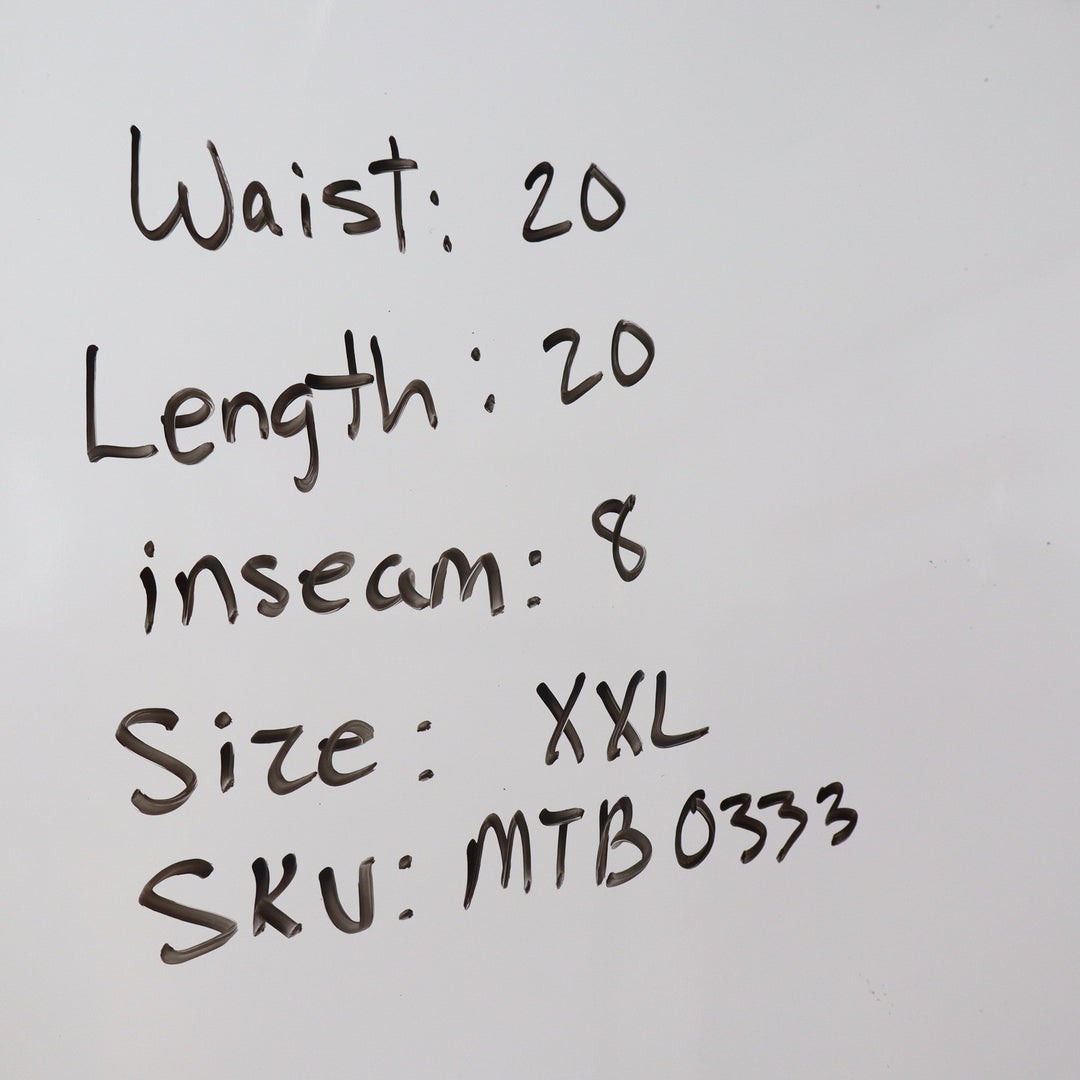 Waist: 20
Length: 20
inseam: 8
Size: XXL
SKU: MTB0333